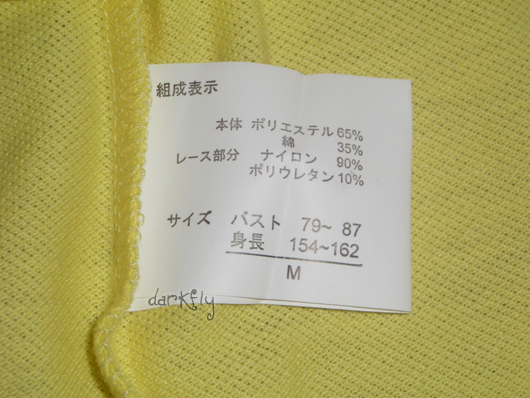 組成表示
本体 ポリエステル 65%
綿 35%
レース部分 ナイロン 90%
ポリウレタン 10%
サイズ バスト 79~ 87
身長 154~162
M
darkfly